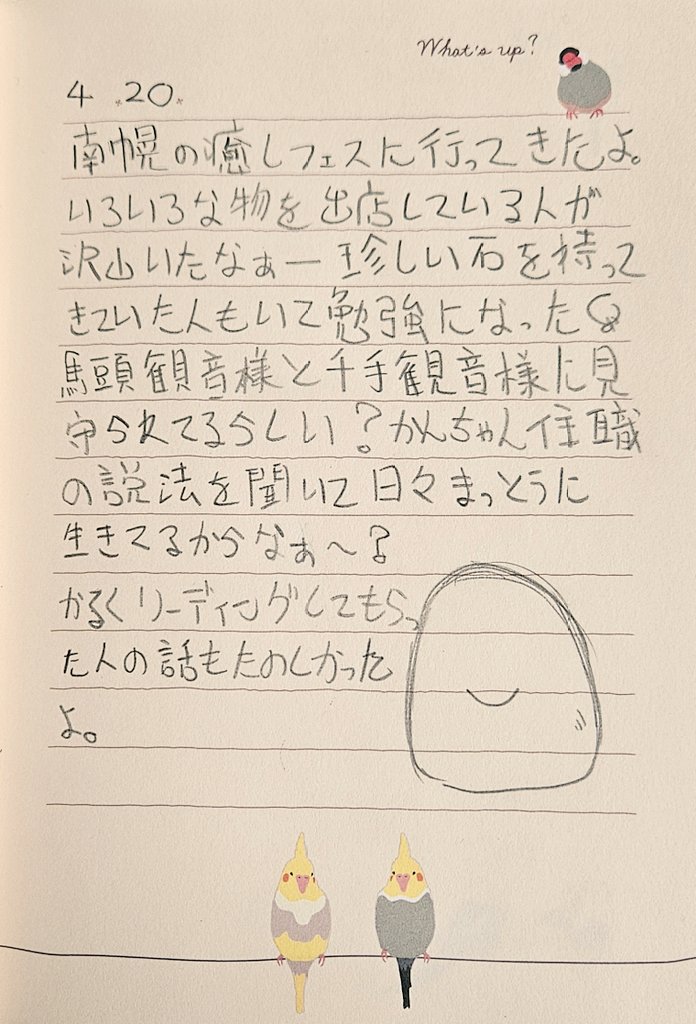 What's up?
4.20.
南幌の癒しフェスに行ってきたよ。
いろいろな物を出店している人が
沢山いたなぁー珍しい石を持って
きていた人もいて勉強になった
馬頭観音様と千手観音様に見
守られてるらしい?かんちゃん住職
の説法を聞いて日々まっとうに
生きてるからなぁ〜?
かるくリーディングしてもらっ
た人の話もたのしかった
よ。